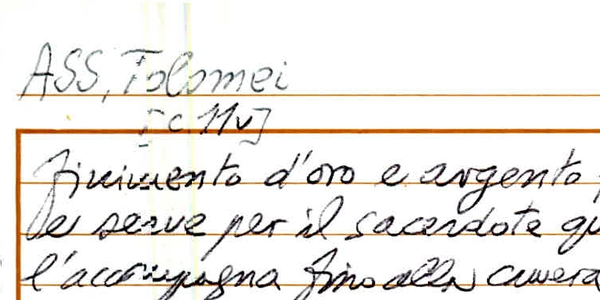 ASS, Tolomei
[c. 11v]
finimento d'oro e argento
le serve per il sacerdote qu
l'accompagna fino alla camera